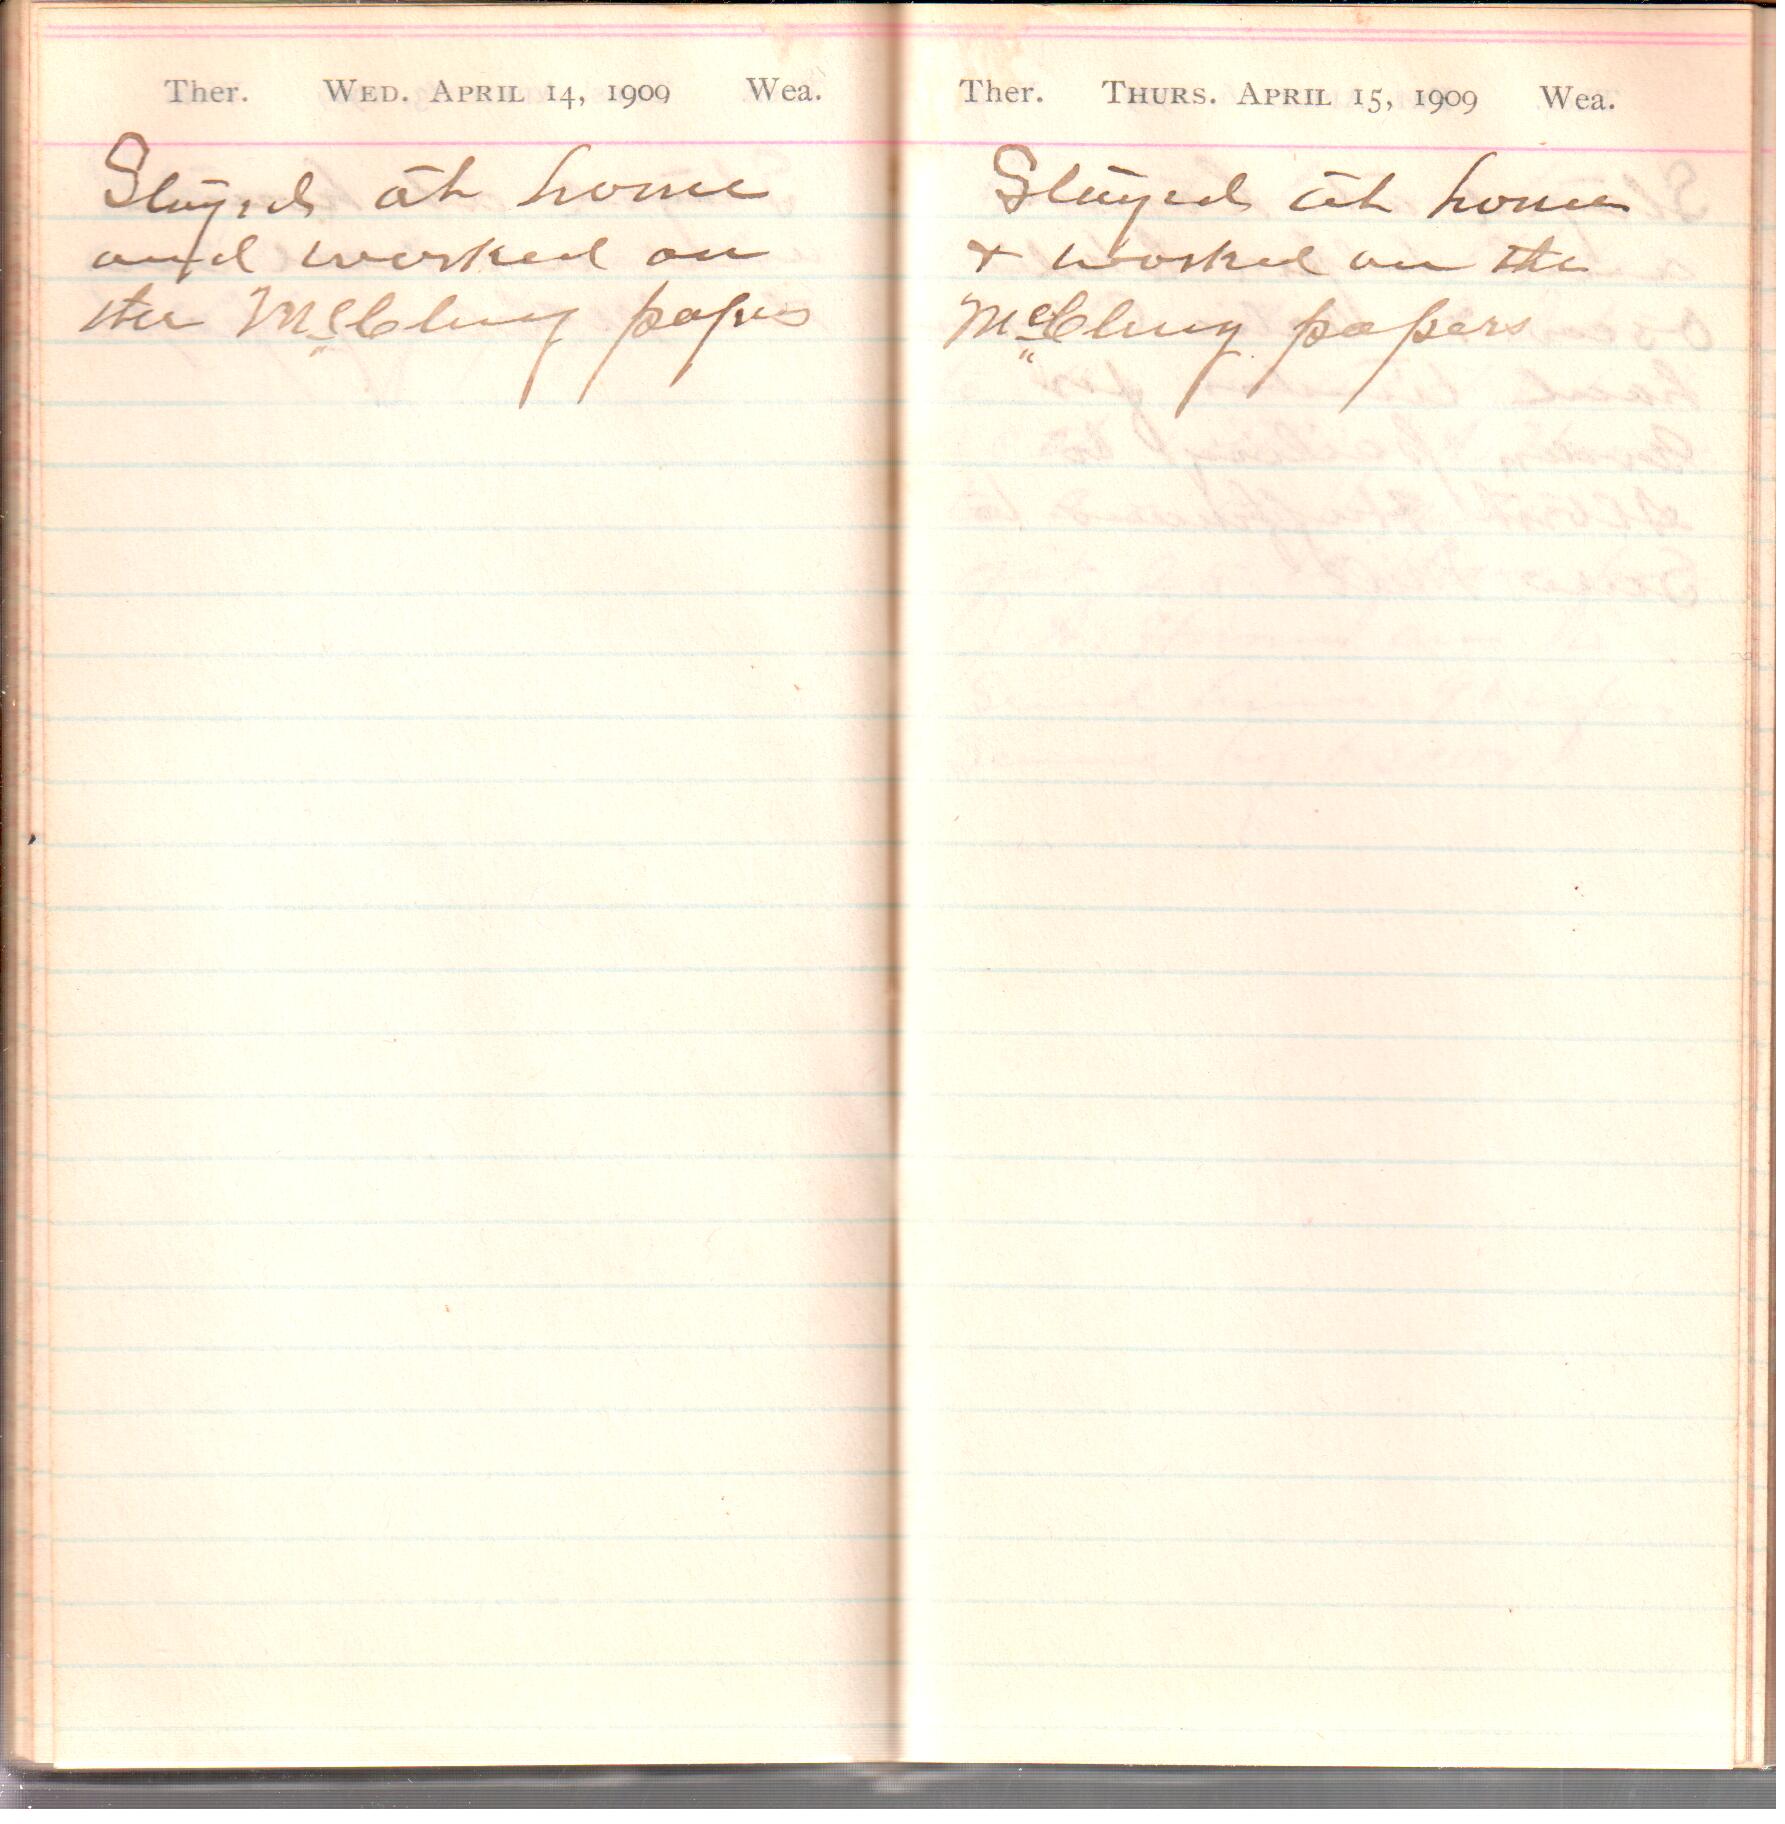 Ther. WED. APRIL 14, 1909 Wea.
Stayed at home
and worked on
the McClung papers
Ther. THURS. APRIL 15, 1909 Wea.
Stayed at home
& worked on the
McClung papers